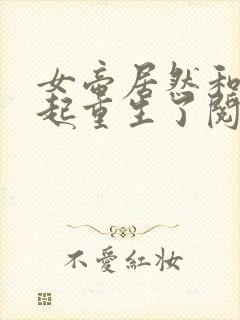 女帝居然和
起重生了阅
不愛紅妝